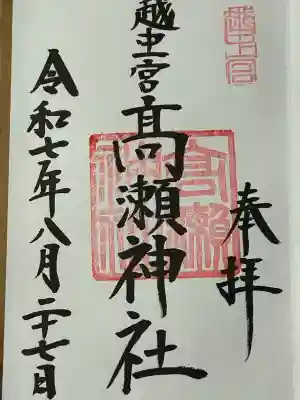 越中一宮
奉拝
越中一宮
髙瀬神社
令和七年八月二十七日